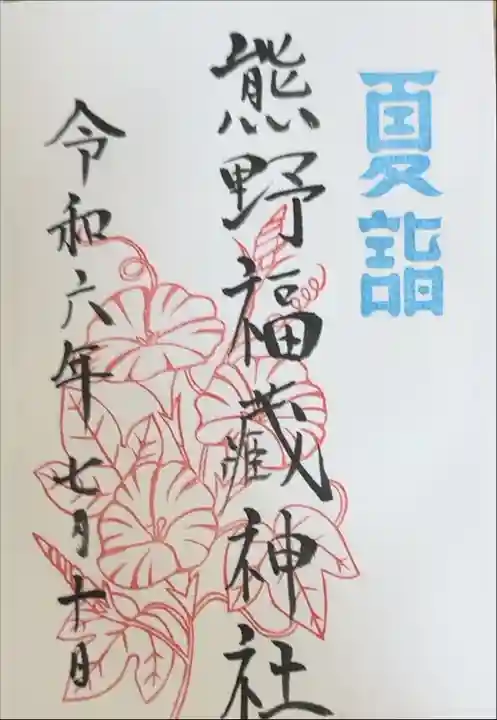 夏詣
熊野福藏神社
令和六年七月十日